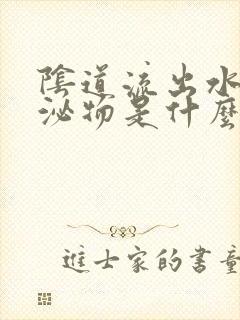 陰道流出水
泌物是什麼
進士家的書童